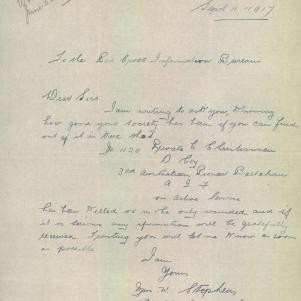 Sept 11 1917
To the Red Cross Information Bureau
Dear Sirs
I am writing to ask you, Knowing
how good your society has been if you can find
out if it is true that
No 1120 Private C Christensen
D Coy
3rd Australian Pioneer Battalion
A I F
on Active Service
has been Killed or is he only wounded and if
it is serious any information will be gratefully
receive. Trusting you will let me Know as soon
as possible
I am
Yours
W. Stephens